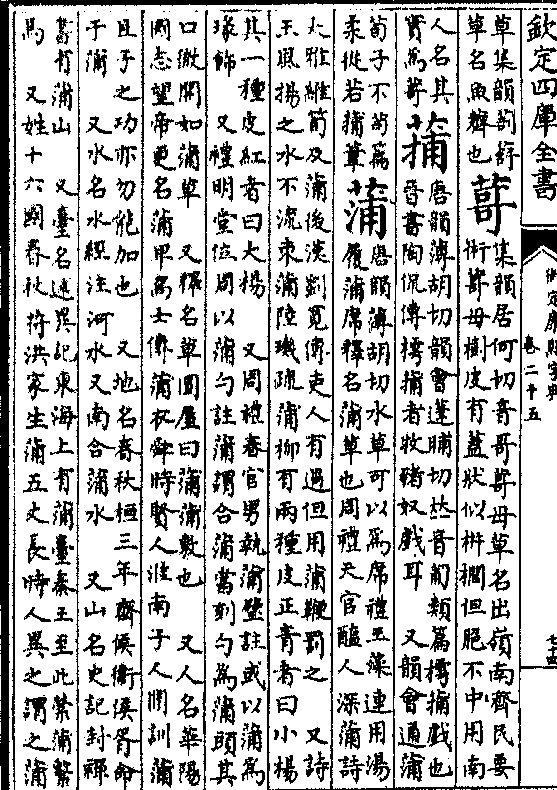 欽定四庫全書
御定康熙字典
卷二十五
草集韻
草名魚薺也
䔅
集韻居何切音哥䔅母草名出嶺南齊民要
術䔅母樹皮有蓋狀似栟櫚但脆不中用南
人名其
實為䔅
蒱
唐韻薄胡切韻會蓬晡切𠀤音匍類篇摴蒱戲也
晉書陶侃傳樗蒱者牧豬奴戲耳 又韻會通蒲
荀子不苟篇
柔從若蒱葦
蒲
唐韻薄胡切水草可以為席禮玉藻連用湯
履蒲席釋名蒲草也周禮天官醢人深蒲詩
大雅維筍及蒲後漢劉寬傳吏人有過但用蒲鞭罰之 又詩
王風揚之水不流束蒲陸璣疏蒲柳有兩種皮正青者曰小楊
其一種皮紅者曰大楊 又周禮春官男執蒲璧註或以蒲為
瑑飾 又禮明堂位周以蒲勺註蒲謂合蒲當刻勺為蒲頭其
口微開如蒲草 又釋名草圜屋曰蒲蒲敷也 又人名華陽
國志望帝更名蒲卑高士傳蒲衣舜時賢人淮南子人間訓蒲
且子之功亦勿能加也 又地名春秋桓三年齊侯衛侯胥命
于蒲 又水名水經注河水又南合蒲水 又山名史記封禪
書有蒲山 又臺名述異記東海上有蒲臺秦王至此縈蒲繫
馬 又姓十六國春秋苻洪家生蒲五丈長時人異之謂之蒲